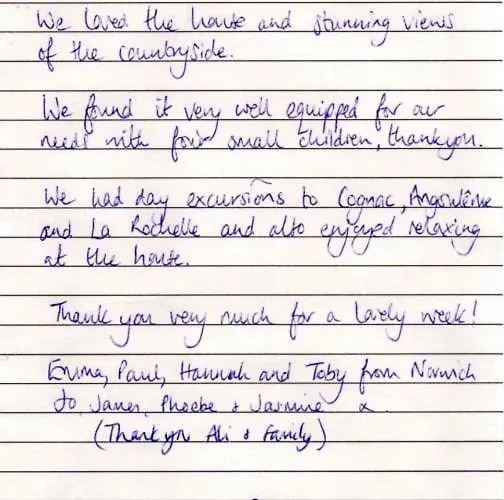 We loved the house and stunning views
of the countryside.
We found it very well equipped for our
needs with four small children, thankyou.
We had day excursions to Cognac, Angoulême
and La Rochelle and also enjoyed relaxing
at the house.
Thank you very much for a lovely week!
Emma, Paul, Hannah and Toby from Norwich
to, James, Phoebe & Jasmine x
(Thank you Ali & Family)